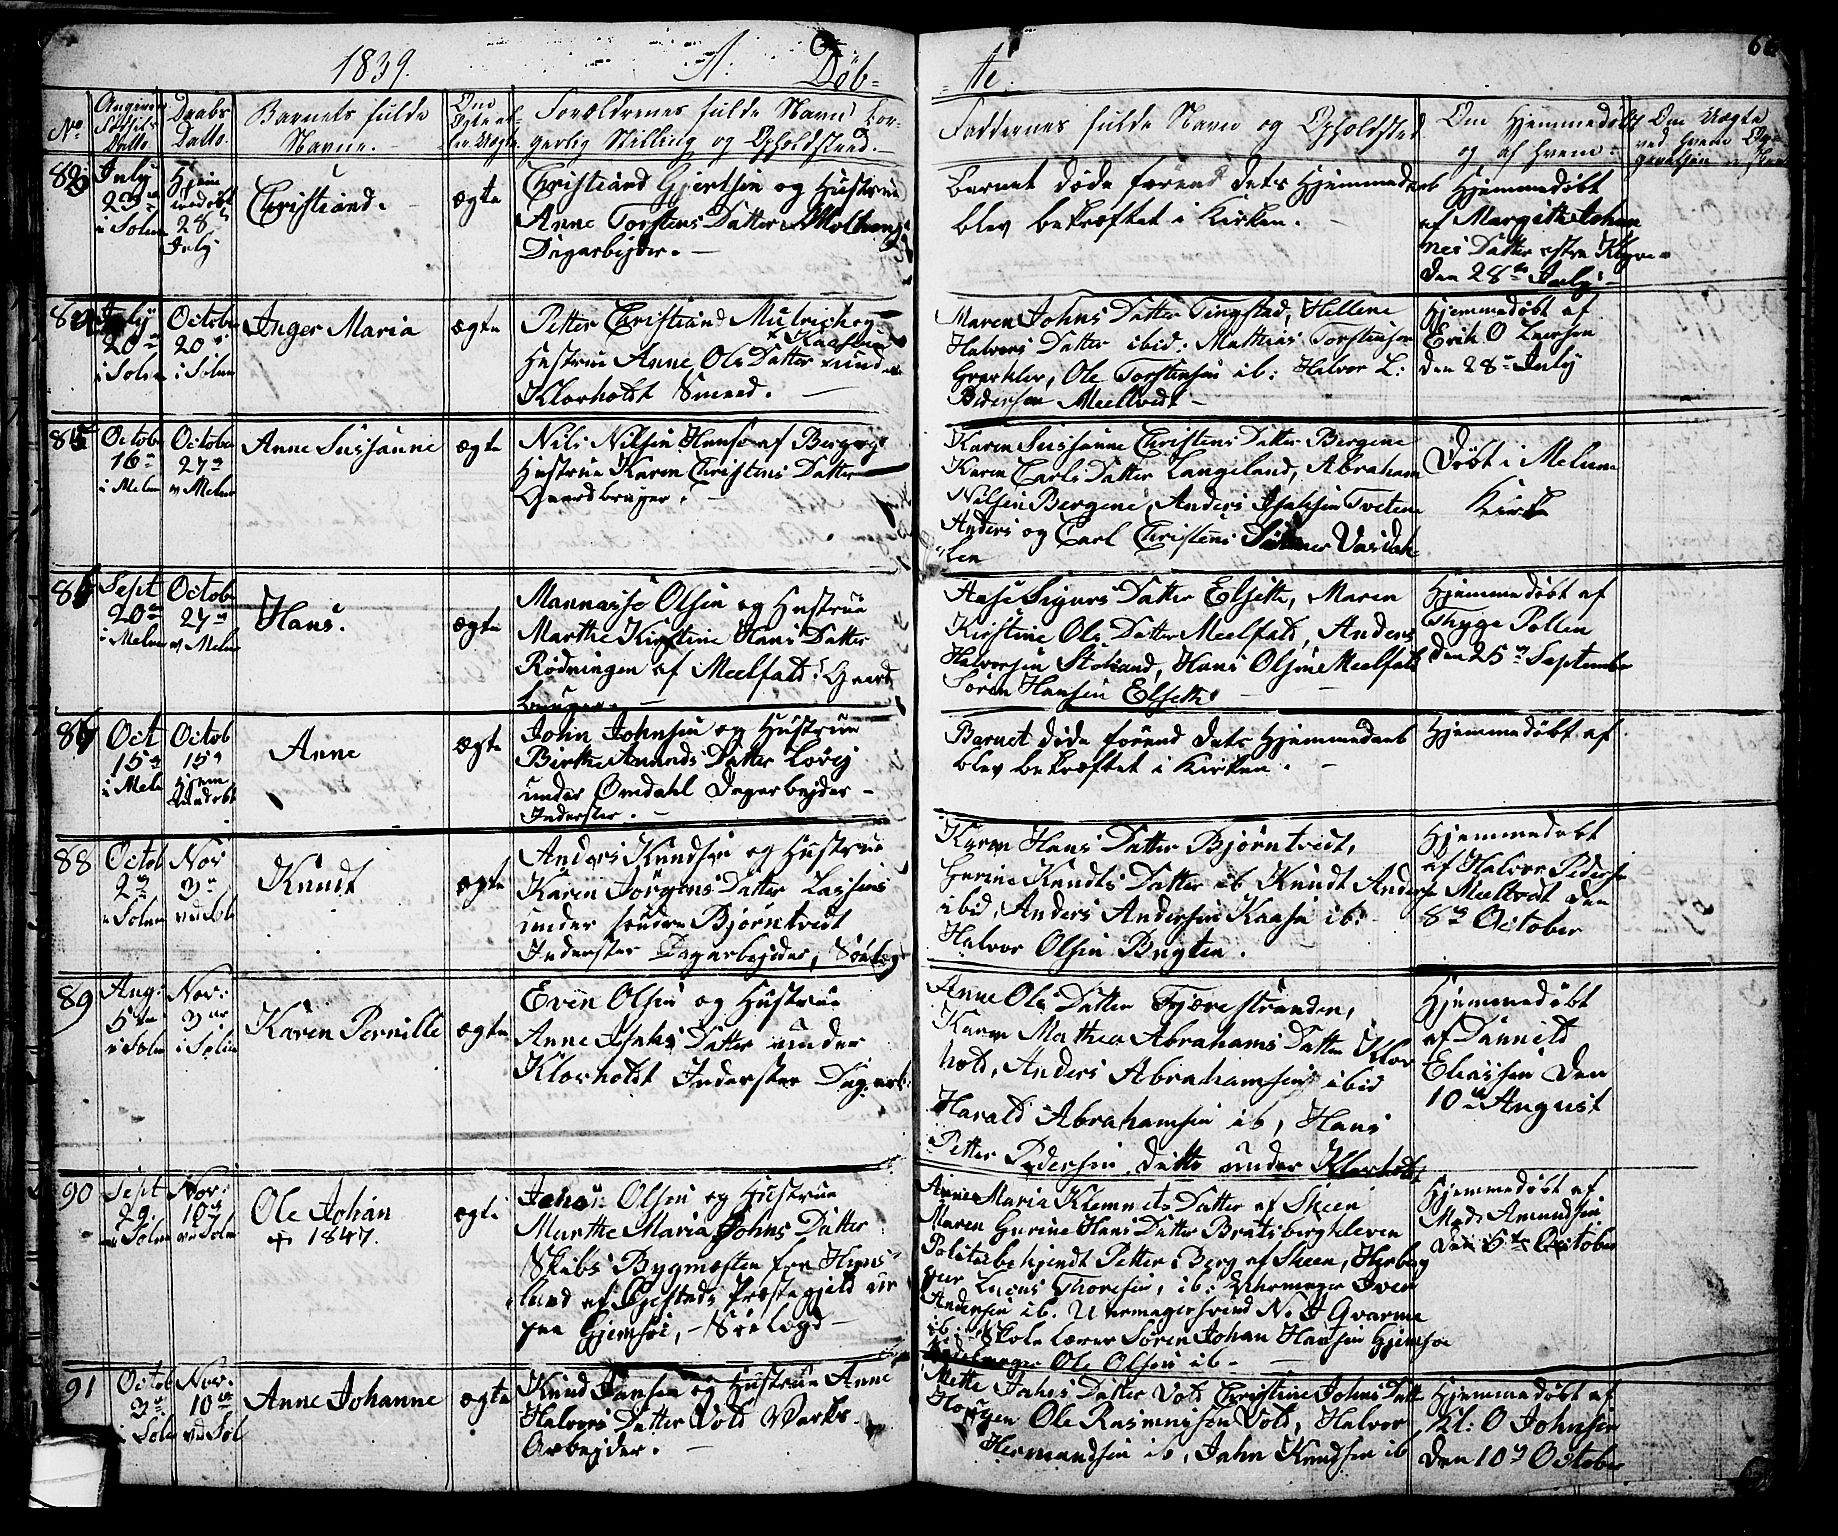 1839.
A.
Døb-
te.
66
No
Angiven Fødsels Datto
Daabs Datto.
Barnets fulde Navne.
Om Egte el- ler Uegte
Forældrenes fulde Navn, bor-
gerlig Stilling og Opholdssted.
Faddernes fulde Navn og Opholdsted
Om Hjemmedøbt
og af hvem:
Om Uægte
ved hvem
83
July
23
i Solum
Hjem
medøbt
28
July
Christiand.
ægte
Christiand Gjertsen og Hustrue
Anne Torstens Datter
Dagarbejder.
Barnet døde førend dets Hjemmedaab
blev bekræftet i Kirken.
Hjemmedøbt
af Margithe Johan
nes Datter østre
den 28de July
84
July
20
i Solum
October
20
i Solum
Inger Maria
ægte
Petter Christiand Mulrich og
Hustrue Anne Ols Datter Kaasene und
Klovholdt Smeed.
Maren Johns Datter Tingstad, Hellene
Halvors Datter ibid: Mathias Torstensen
Ole Torstensen ib: Halvor L:
Pedersen Meelvedt
Hjemmedøbt af
Erik O Larsen
den 28 July
85
Octob
16
i Melum
October
27
v Melum
Anne Sussanne
ægte
Nils Nilsen Hansø af Berg og
Hustrue Karen Christens Datter
Gaardbruger.
Karen Sussanne Christens Datter Bergene
Karen Carls Datter Langeland, Abraham
Nilsen Bergene, Anders Isaksen Tvetene
Anders og Carl Christens Sønner Vasdah-
len
Døbt i Melum
Kirke
86
Sept
20
i Melum
October
27
v Melum
Hans.
ægte
Mannasse Olsen og Hustrue
Marthe Kirstine Hans Datter
Rødningen af Meelfald: Gaard
bruger.
Aase Sigurs Datter Elseth, Maren
Kirstine Ols Datter Meelfald, Anders
Halvorsen Stokand, Hans Olsen Meelfald
Søren Hansen Elseth
Hjemmedøbt af
Thyge Pollen
den 25 September
Oct
15
i Melum
Octob
15
Hjem
medøbt
Anne
ægte
John Johnsen og Hustrue
Birthe Amunds Datter Løvej
under Omdahl Dagarbejder
Inderster.
Barnet døde førend dets Hjemmedaab
blev bekræftet i Kirken.
Hjemmedøbt af
88
Octob
2
i Solum
Nov
3
ved Sol
Knudt
ægte
Anders Knudsen og Hustrue
Karen Jørgens Datter Lassens
under søndre Bjørntvedt
Inderster Dagarbejder, Sølaug
Karen Hans Datter Bjørntvedt,
Gurine Knudts Datter ib Knudt Anders
ibid, Anders Andersen Kaasa ib:
Halvor Olsen Bugten.
Hjemmedøbt
af Halvor Pederse
Meelvedt den
8 October
89
Aug:
5
i Solum
Nov:
3
i Solum
Karen Pernille
ægte
Even Olsen og Hustrue
Anne Isaks Datter under
Klovholdt Inderster Dagarb:
Anne Ols Datter Fjærestranden,
Karen Mathea Abrahams Datter Klov
hold, Anders Abrahamsen ibid
Harald Abrahamsen ib, Hans
Petter Pedersen ditto under Klovholdt
Hjemmedøbt
af Danneld
Eliassen den
10 August
90
Sept
29
Solum
Nov:
10
ved Solum
Ole Johan
+ 1847.
ægte
Olsen og Hustrue
Marthe Maria Johns Datter
Skibs Bygmesten fra
land af Gjestads Præstegjeld nu
paa Gjemsøe, Sølægd
Anne Maria Klemmets Datter af Skeen
Maren Gurine Hans Datter Bratsbergkleven
Politiebetjendt Petter Berg af Skeen,
Lucas Thoresen, ib: Iver
Andersen ib. N. J Qvarme
ib: Skolelærer Søren Johan Hansen Gjemsøe
Ole Olsen ib
Hjemmedøbt af
Mads Amundsen
den 5 October
91
Octob
3
i Solum
Nov:
10
ved Sol
Anne Johanne
ægte
Knud Jansen og Hustrue Anne
Halvors Datter Vold Værks
Arbejder.
Mette Jahns Datter Vold Christine Johns Datt
Ole Rasmussen Vold, Halvor
Hermandsen ib, Jahn Knudsen ib
Hjemmedøbt af
Kl: O Johnsen
den 10 October